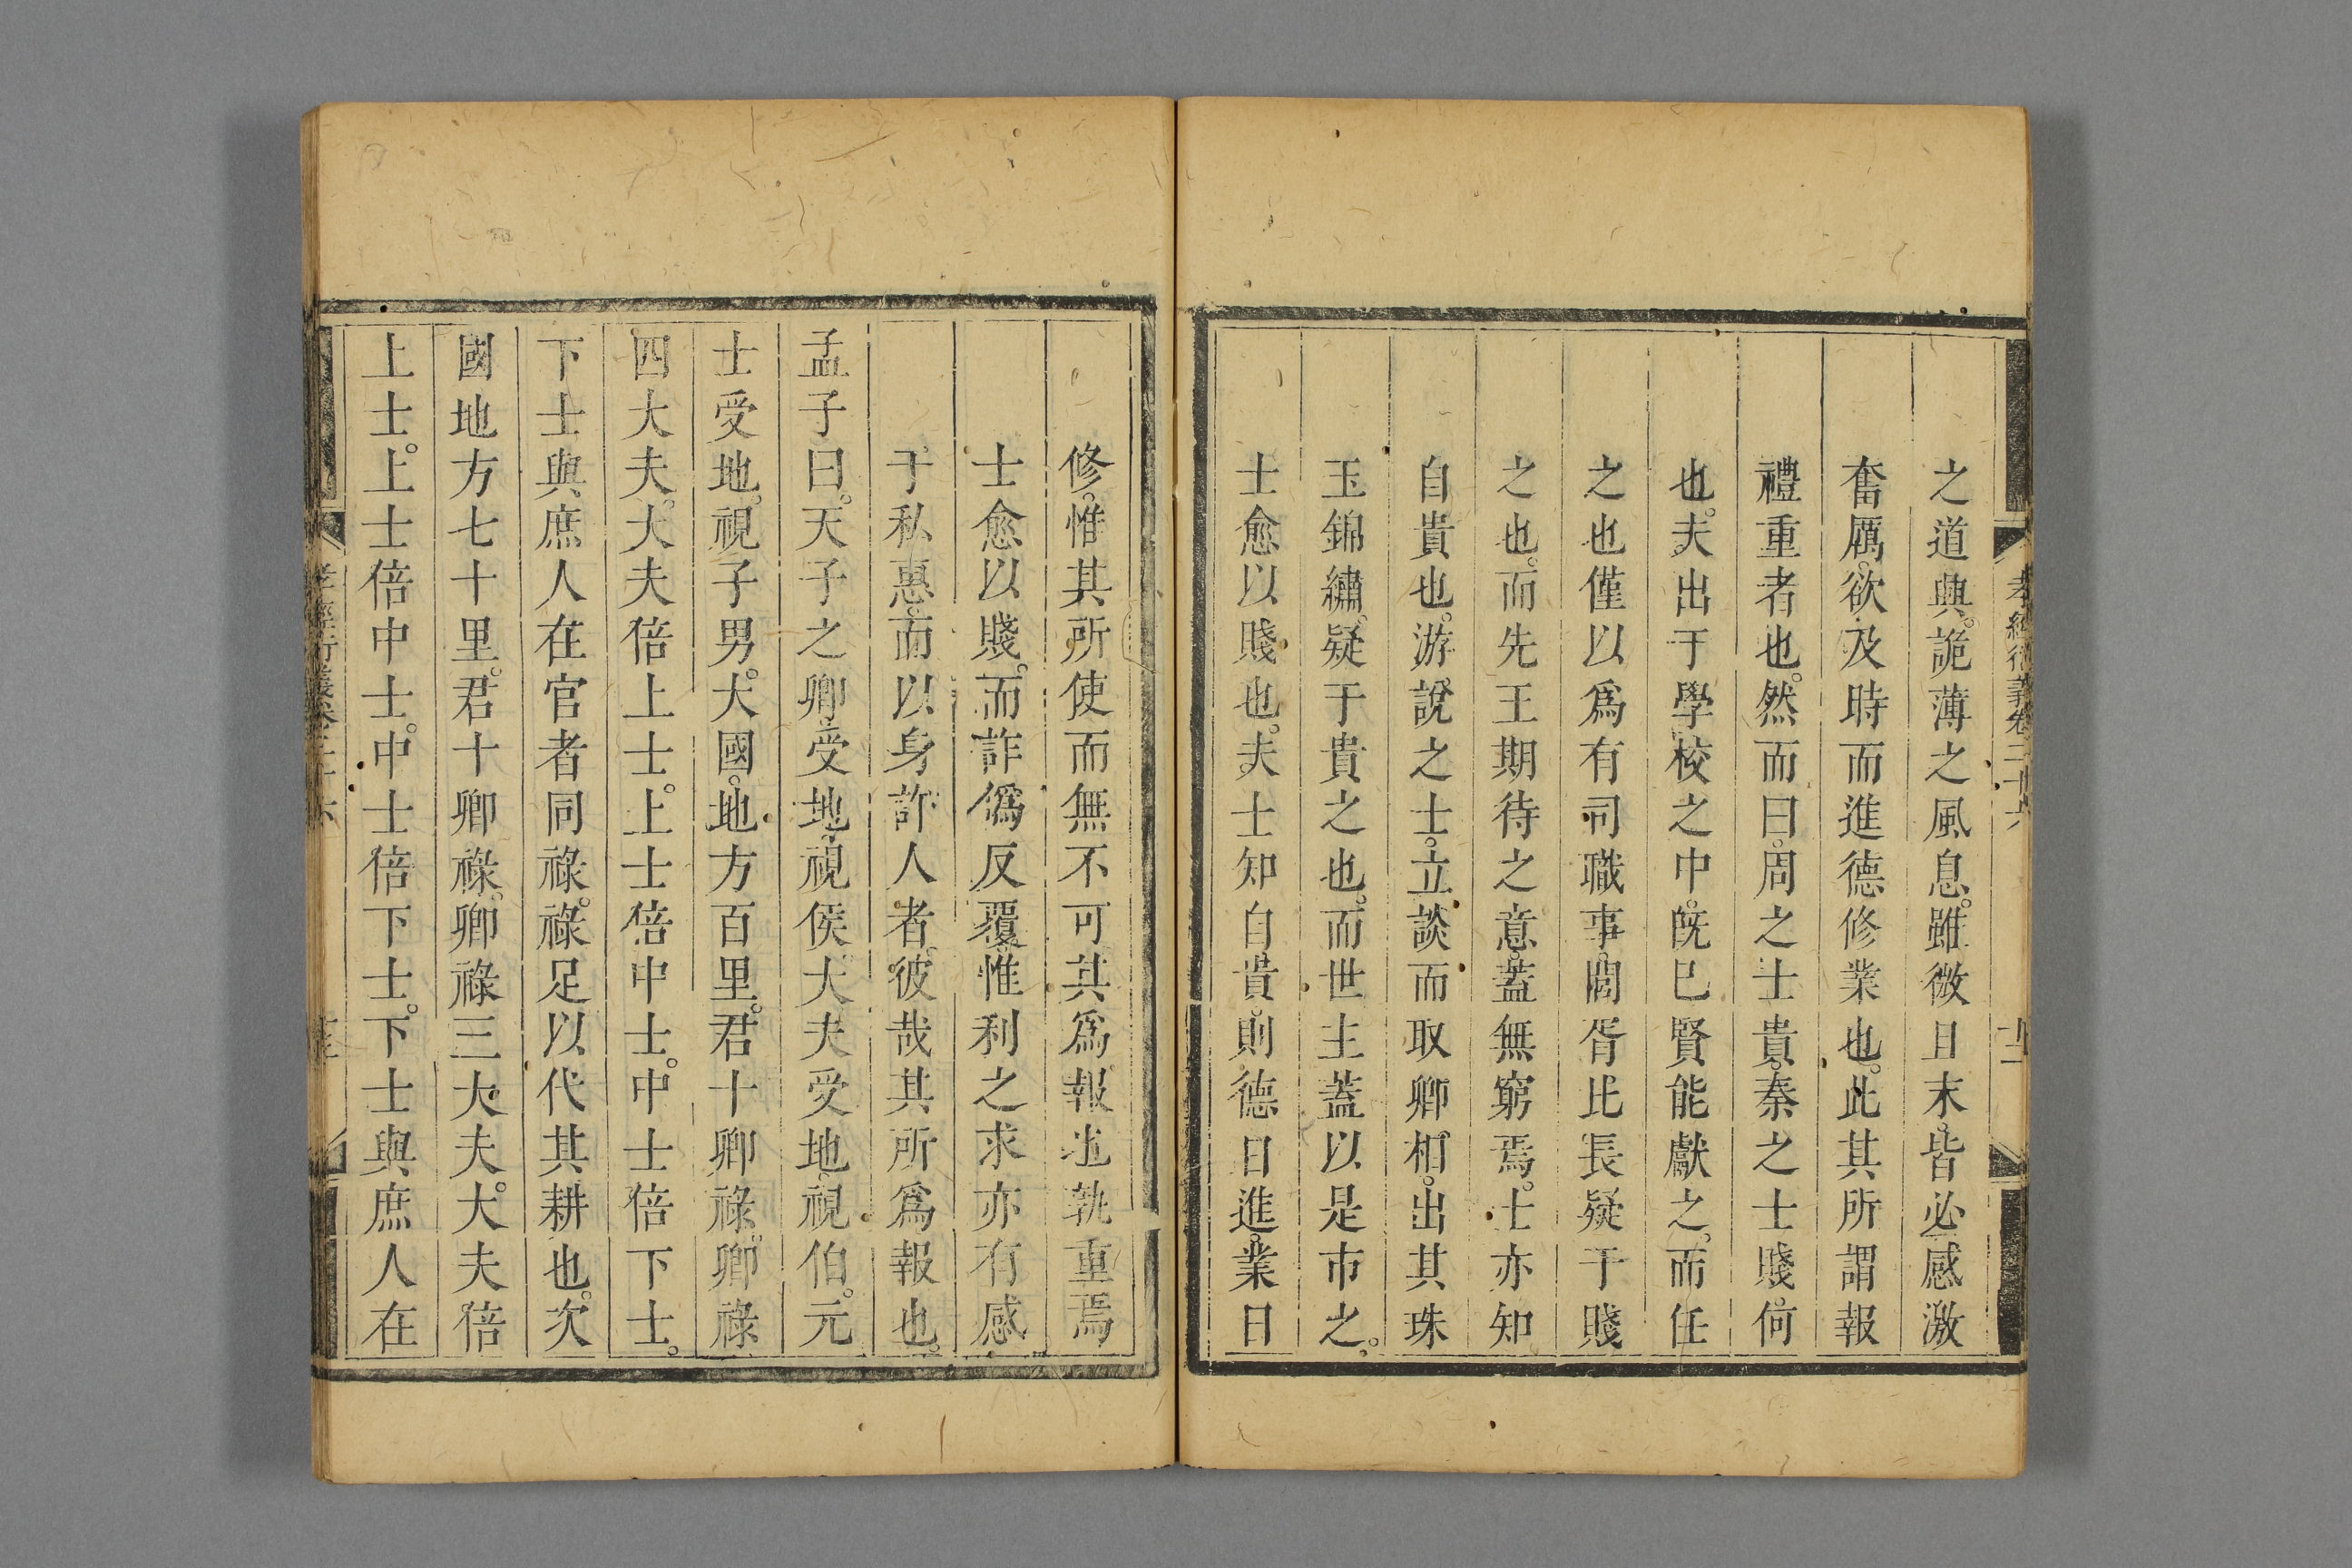 之道興。詭薄之風息。雖微日末。皆必感激
奮厲。欲及時而進德修業也。此其所謂報
禮重者也。然而曰。周之士貴。秦之士賤。何
也。夫出于學校之中。旣已賢能獻之。而任
之也僅以爲有司職事。閭胥比長疑于賤
之也。而先王期待之意。蓋無窮焉。士亦知
自貴也。游說之士。立談而取卿相。出其珠
玉錦繡。疑于貴之也。而世主蓋以是市之。
士愈以賤也。夫士知自貴。則德日進。業日
修。惟其所使而無不可。其爲報也孰重焉
士愈以賤。而詐僞反覆。惟利之求。亦有感
于私惠。而以身許人者。彼哉其所爲報也。
孟子曰。天子之卿。受地視侯。大夫受地視伯。元
士受地。視子男。大國。地方百里。君十卿祿。卿祿
四大夫。大夫倍上士。上士倍中士。中士倍下士。
下士與庶人在官者同祿。祿足以代其耕也。次
國地方七十里。君十卿祿。卿祿三大夫。大夫倍
上士。上士倍中士。中士倍下士。下士與庶人在